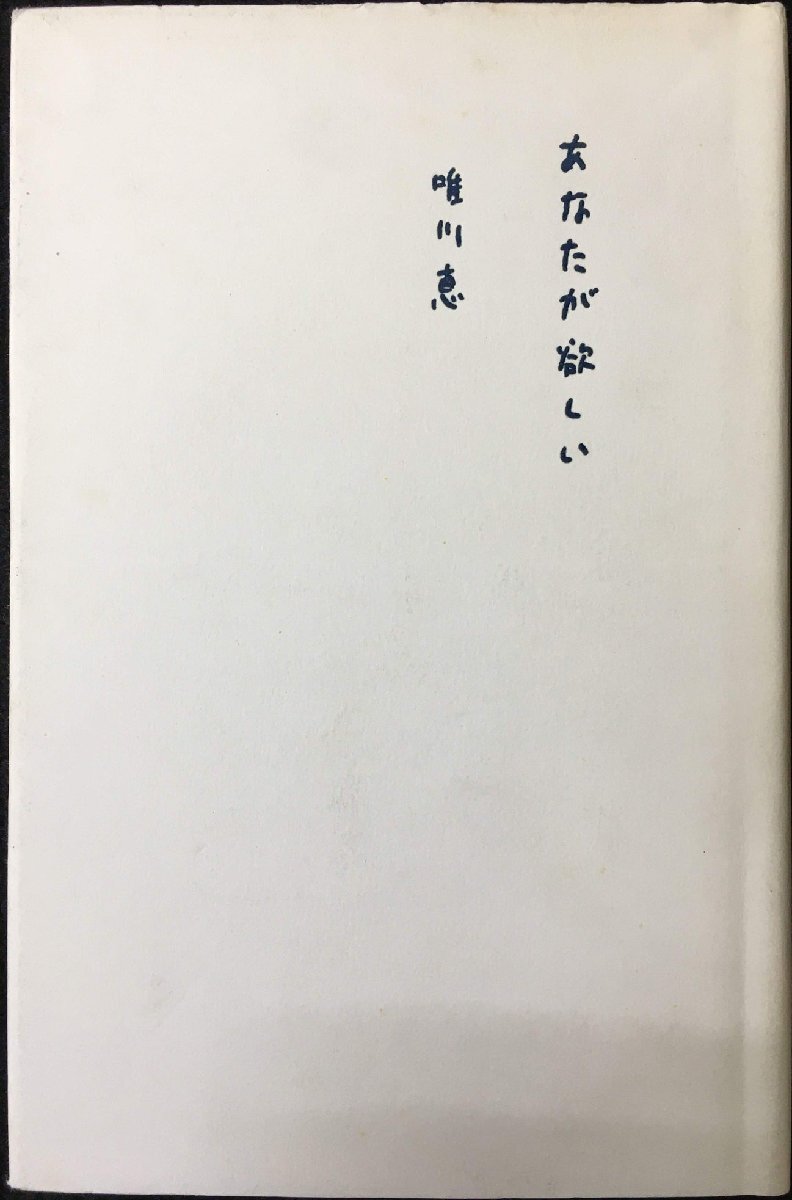 あなたが欲しい
唯川恵